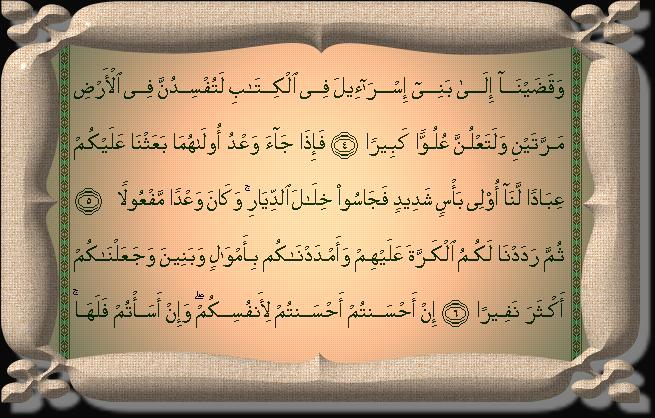 وَقَضَيْنَآ إِلَىٰ بَنِىٓ إِسْرَٰٓءِيلَ فِى ٱلْكِتَٰبِ لَتُفْسِدُنَّ فِى ٱلْأَرْضِ
مَرَّتَيْنِ وَلَتَعْلُنَّ عُلُوًّا كَبِيرًا ٤ فَإِذَا جَآءَ وَعْدُ أُولَىٰهُمَا بَعَثْنَا عَلَيْكُمْ
عِبَادًا لَّنَآ أُو۟لِى بَأْسٍ شَدِيدٍ فَجَاسُوا۟ خِلَٰلَ ٱلدِّيَارِ ۚ وَكَانَ وَعْدًا مَّفْعُولًا ٥
ثُمَّ رَدَدْنَا لَكُمُ ٱلْكَرَّةَ عَلَيْهِمْ وَأَمْدَدْنَٰكُم بِأَمْوَٰلٍ وَبَنِينَ وَجَعَلْنَٰكُمْ
أَكْثَرَ نَفِيرًا ٦ إِنْ أَحْسَنتُمْ أَحْسَنتُمْ لِأَنفُسِكُمْ ۖ وَإِنْ أَسَأْتُمْ فَلَهَا ۚ